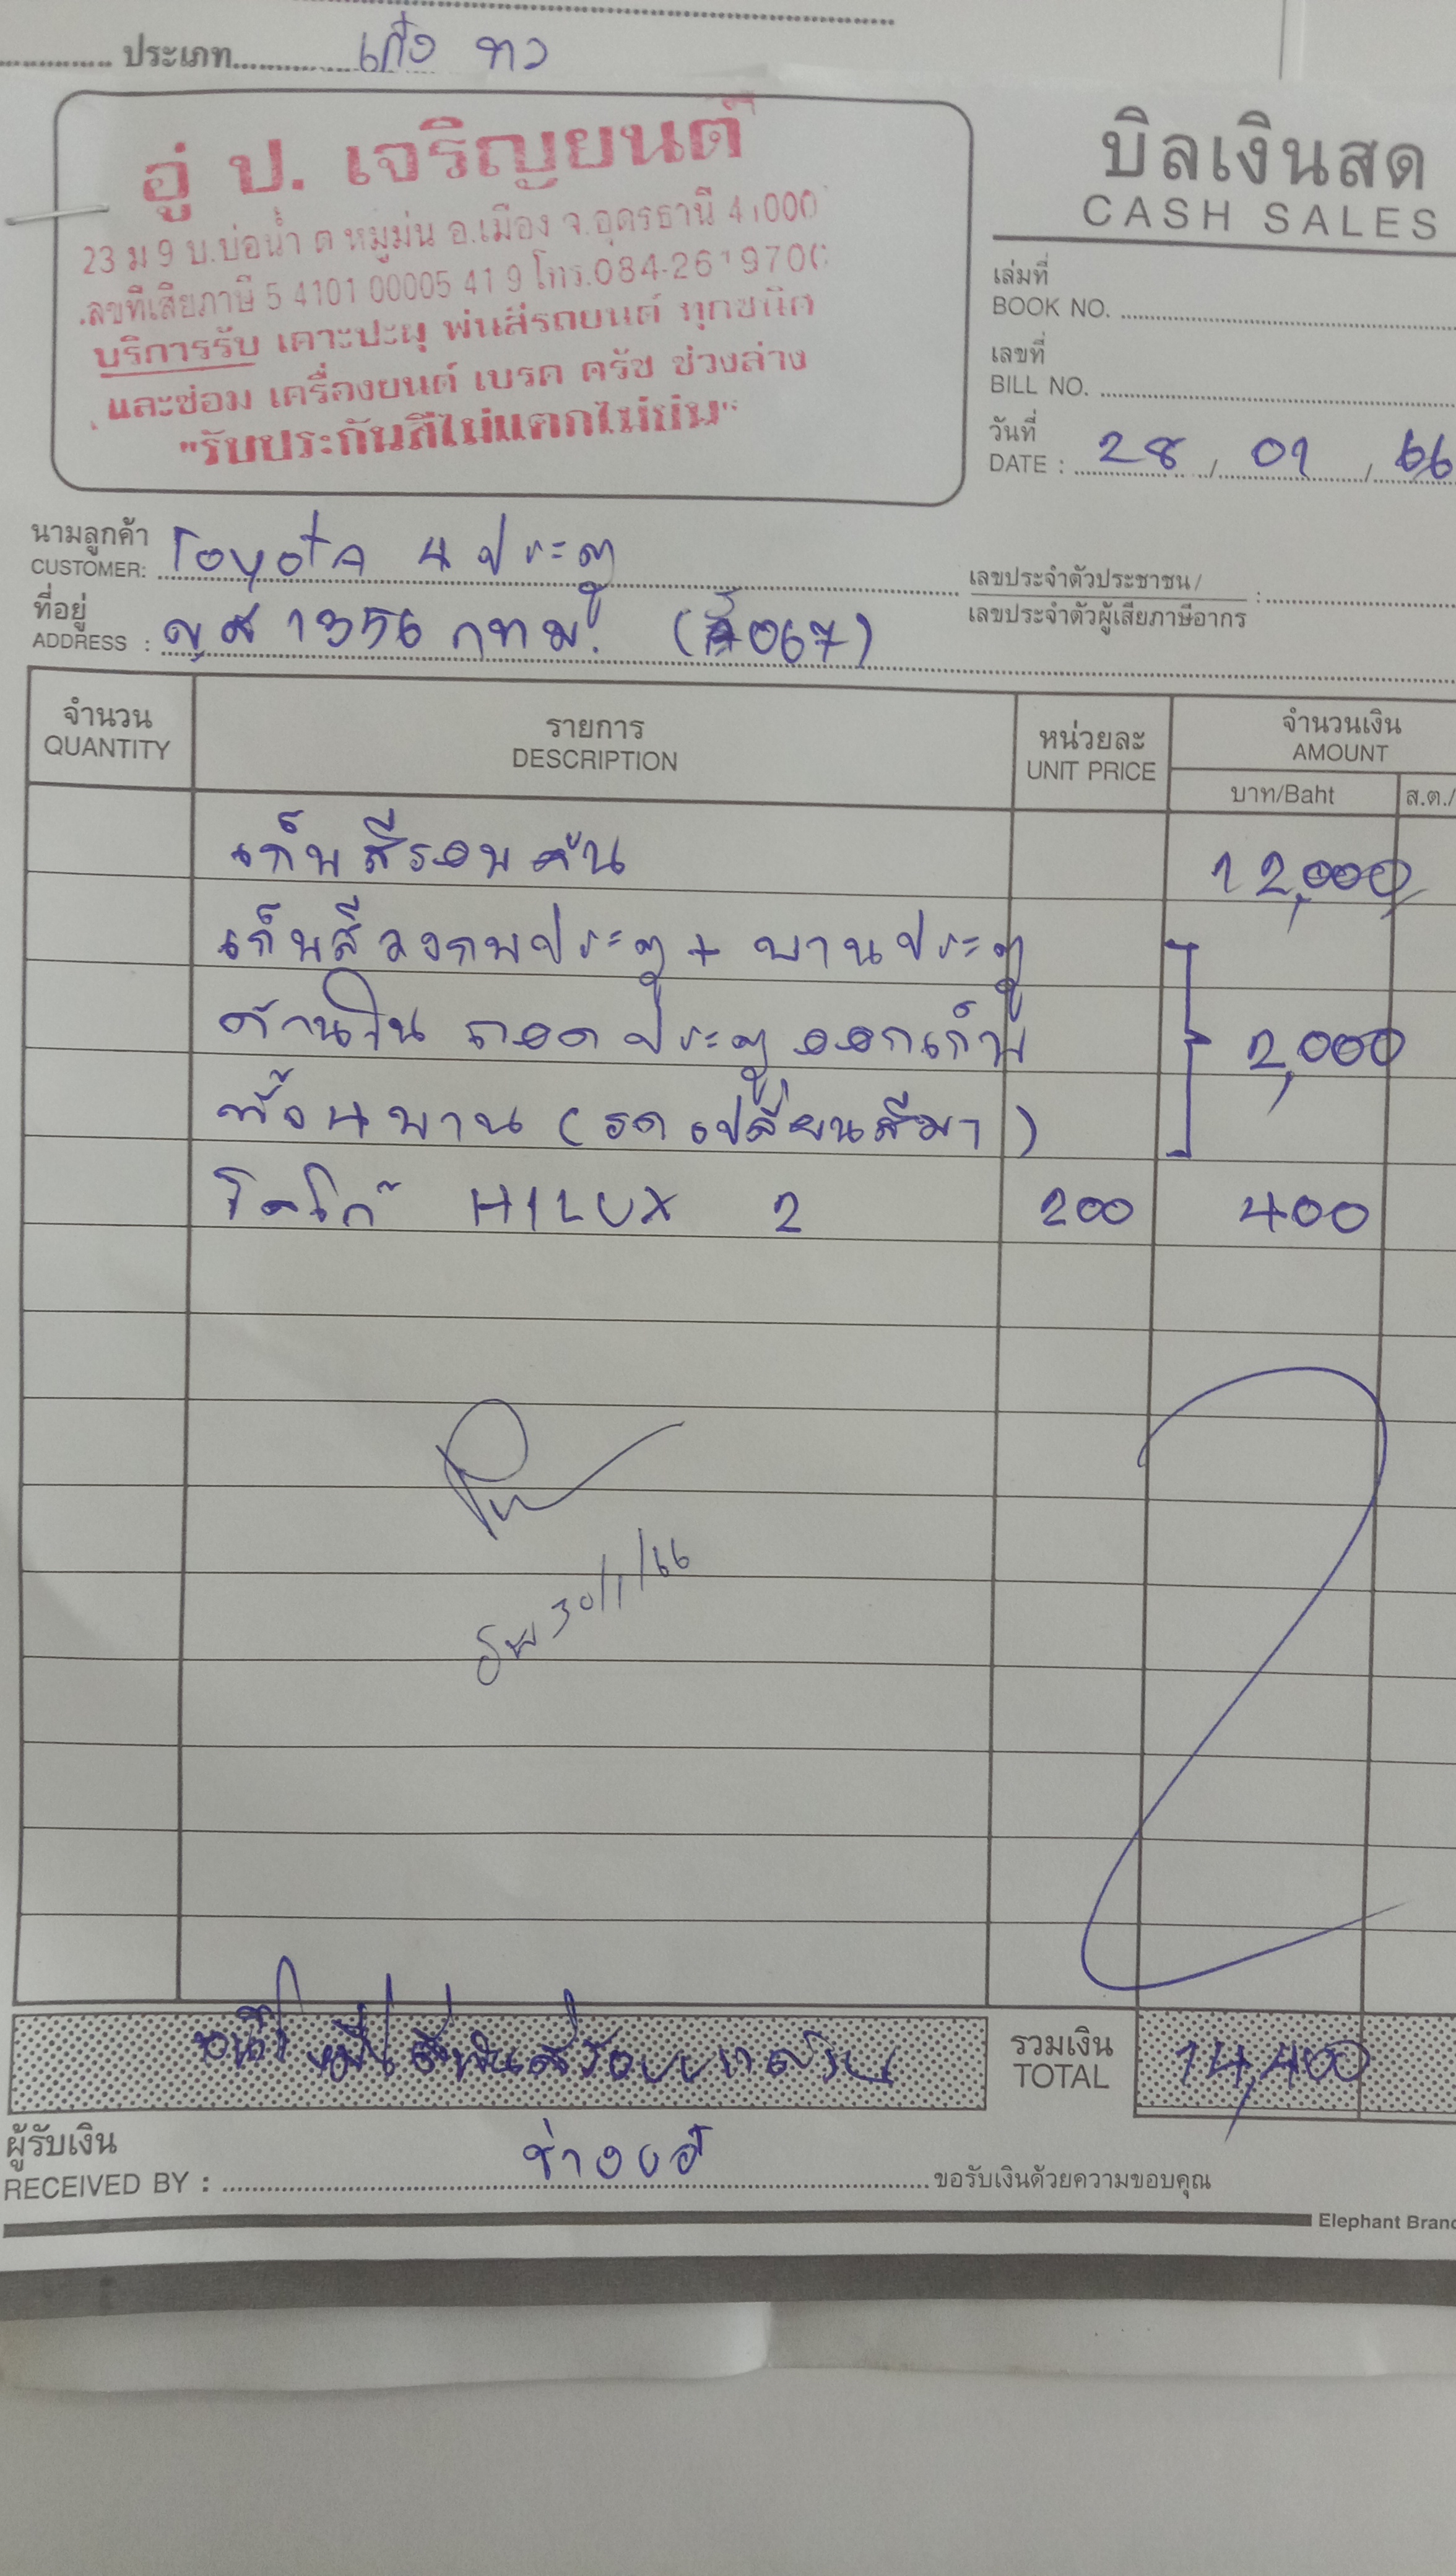 ประเภท เก๋ง
อู่ ป. เจริญยนต์
23 ม 9 บ.บ่อน้ำ ต หมูม่น อ.เมือง จ.อุดรธานี 41000
เลขที่เสียภาษี 5 4101 00005 41 9 โทร.084-26 970
บริการรับ เคาะปะผุ พ่นสีรถยนต์ ทุกชนิด
และซ่อม เครื่องยนต์ เบรค ครัช ช่วงล่าง
"รับประกันสีไม่แตกไม่บ่น"
บิลเงินสด
CASH SALES
เล่มที่
BOOK NO.
เลขที่
BILL NO.
วันที่
DATE : 28 / 01 / 66
นามลูกค้า
CUSTOMER: Toyota 4 ประตู
เลขประจำตัวประชาชน /
เลขประจำตัวผู้เสียภาษีอากร :
ที่อยู่
ADDRESS : ญศ 1356 กทม. (สี 067)
จำนวน
QUANTITY
รายการ
DESCRIPTION
หน่วยละ
UNIT PRICE
จำนวนเงิน
AMOUNT
บาท/Baht ส.ต./
เก็บสีรอบคัน 12,000
เก็บสีวงกบประตู + บานประตู
ด้านใน ถอดประตูออกเก็บ 2,000
ทั้ง 4 บาน (รถเปลี่ยนสีมา)
โลโก้ HILUX 2 200 400
30/1/66
หนึ่งหมื่นสี่พันสี่ร้อยบาทถ้วน
รวมเงิน
TOTAL 14,400
ผู้รับเงิน
RECEIVED BY : ขอรับเงินด้วยความขอบคุณ
Elephant Brand